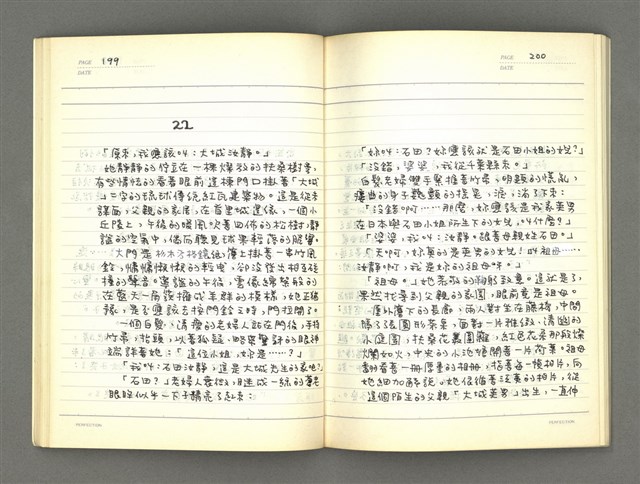 PAGE 199
DATE
22
「原來，我應該叫：大城汝靜。」
她靜靜的佇立在一棵爆放的扶桑樹旁，
有些情怯的看著眼前這棟門口掛著「大城
」二字的琉球傳統紅瓦建築物。這是從未
謀面，父親的家居，在首里城邊傍，一個小
丘陵上，午後的暖風吹著四佈的松樹，靜
謐的空氣中，偶而聽見毬果輕落的回響。
大門是杉木方格鏡，簷上掛著一串竹風
鈴，慵慵懶懶的輕曳，卻沒發出相互碰
撞的聲音。寧謐的午後，雲像綿絮般的
在藍天一角堆擁成羊群的模樣，她正猶
豫，是否應該去按門鈴之時，門拉開了。
一個白髮、清癯的老婦人站在門傍，手持
竹帚，抬頭，以著狐疑，略帶驚訝的眼神
端詳著她：「這位小姐，妳是……？」
「我叫：石田汝靜，這是大城先生的家吧？」
「石田？」老婦人聳似，瞇迷成一絲的蒼老
眼眸似乎一下子睛亮了起來：
PERFECTION
PAGE 200
DATE
「妳叫：石田？妳應該就是石田小姐的女兒？」
「沒錯，婆婆，我從千葉縣來。」
白髮老婦雙手緊握著竹帚，明顯的慌亂，
瘦曲的身子顫顫的搖晃，淚，滴了下來：
「沒錯啊……那麼，妳應該是我家英男
在日本與石田小姐所生下的女兒，叫什麼？」
「婆婆，我叫：汝靜。跟著母親姓石田。」
「天啊，妳真的是英男的女兒！叫祖母……
汝靜啊，我是妳的祖母呀。」
「祖母。」她柔敬的鞠躬致意。這就是了，
果然找尋到父親的家園，眼前竟是祖母。
屋外簷下的長廊，兩人對坐在藤椅，中間
隔了張圓形茶桌，面對一片雅緻、清幽的
小庭園，扶桑花叢圍籬，紅色花朵那般燦
爛如火，中央的小池塘開著一片荷葉。祖母
翻看著一冊厚重的相冊，指著每一幀相片，向
她細加解說。她從循著泛黃的相片，從
這個陌生的父親「大城英男」出生，一直伸
PERFECTION